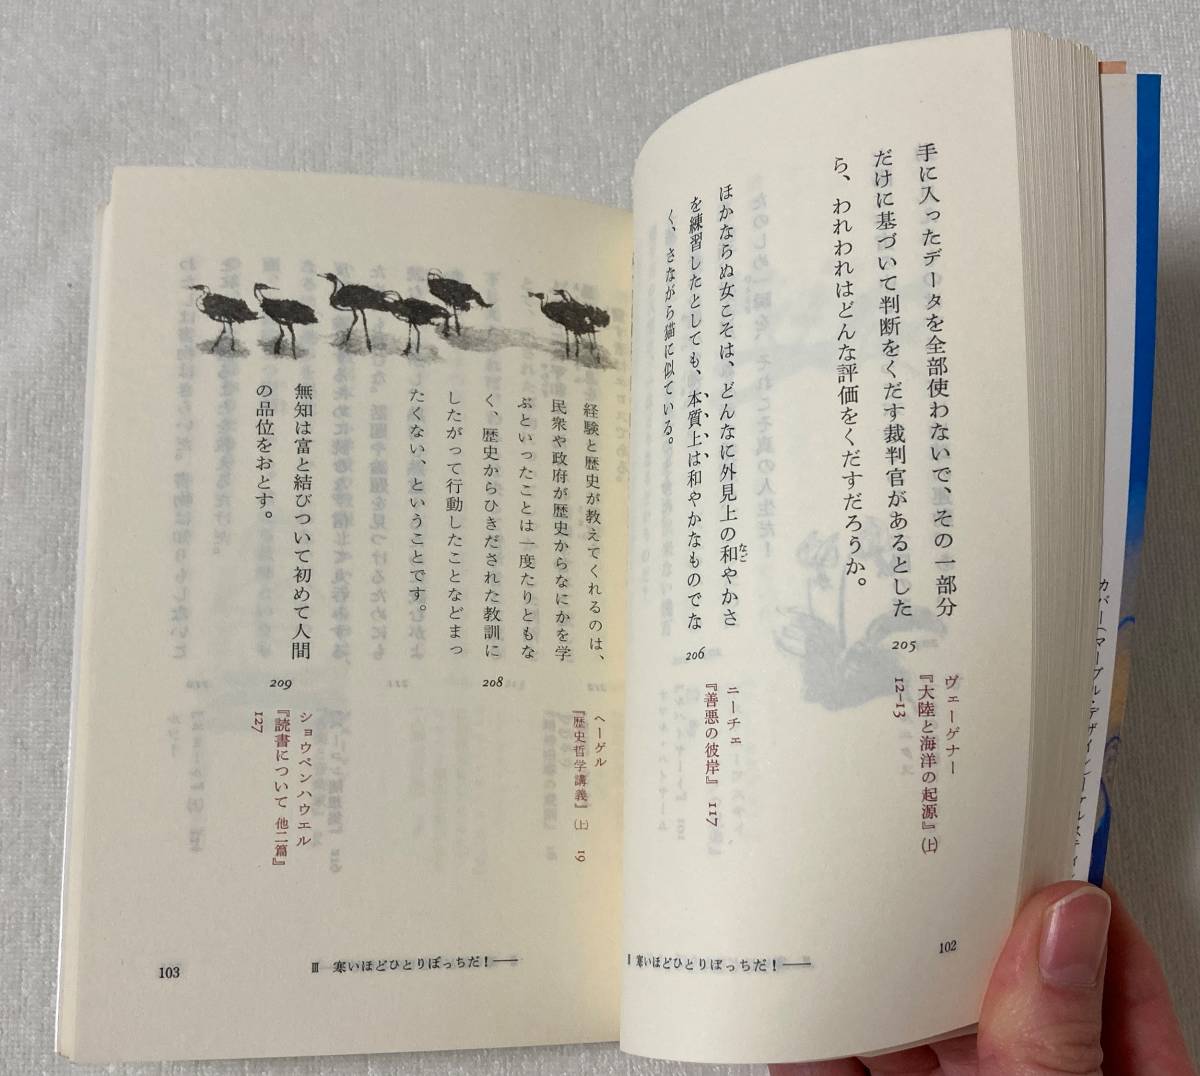 手に入ったデータを全部使わないで、その一部分
だけに基づいて判断をくだす裁判官があるとした
ら、われわれはどんな評価をくだすだろうか。
205
ヴェーゲナー
『大陸と海洋の起源』(上)
12–13
ほかならぬ女こそは、どんなに外見上の和やかさ
なご
を練習したとしても、本質上は和やかなものでな
く、さながら猫に似ている。
206
ニーチェ
『善悪の彼岸』 117
102
Ⅲ 寒いほどひとりぼっちだ!——
経験と歴史が教えてくれるのは、
民衆や政府が歴史からなにかを学
ぶといったことは一度たりともな
く、歴史からひきだされた教訓に
したがって行動したことなどまっ
たくない、ということです。
208
ヘーゲル
『歴史哲学講義』(上) 19
無知は富と結びついて初めて人間
の品位をおとす。
209
ショウペンハウエル
『読書について 他二篇』
127
103
Ⅲ 寒いほどひとりぼっちだ!——
カバー(マーブル・デザイン)=アルスティン